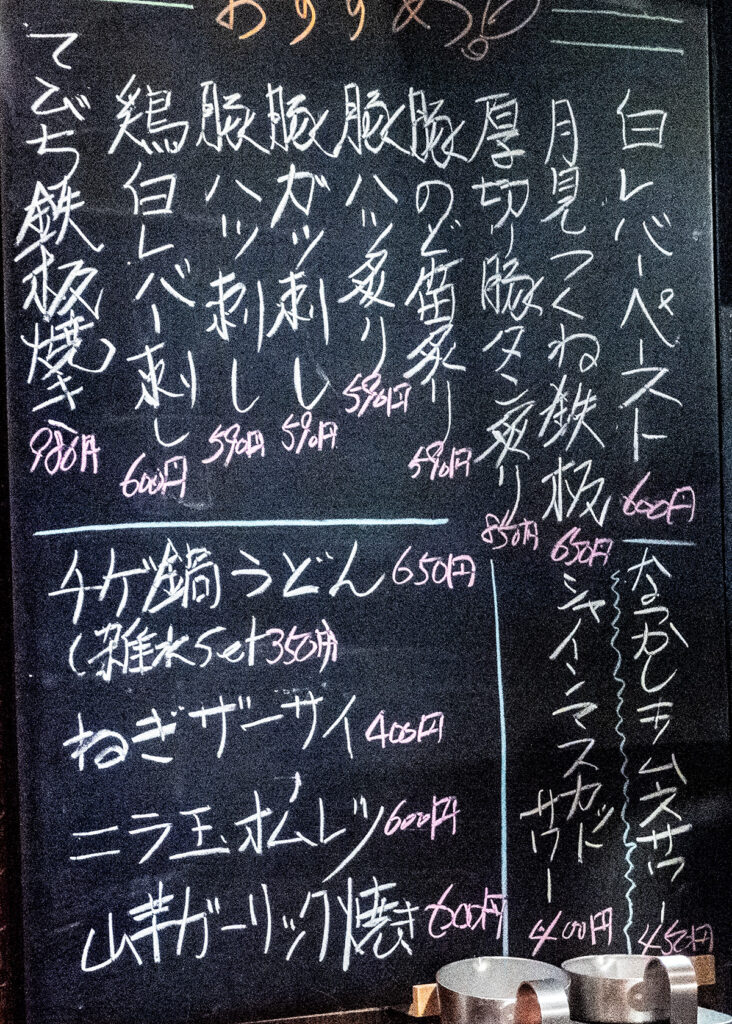 おすすめ!
白レバーペースト 600円
月見つくね鉄板 650円
厚切り豚タン炙り 850円
豚のど笛炙り 590円
豚ハツ炙り 590円
豚ガツ刺し 590円
豚ハツ刺し 590円
鶏白レバー刺し 600円
てびち鉄板焼き 980円
なつかしキムスサワー 450円
シャインマスカットサワー 400円
チゲ鍋うどん 650円
(雑水set350円)
ねぎザーサイ 400円
ニラ玉オムレツ 600円
山芋ガーリック焼き 600円